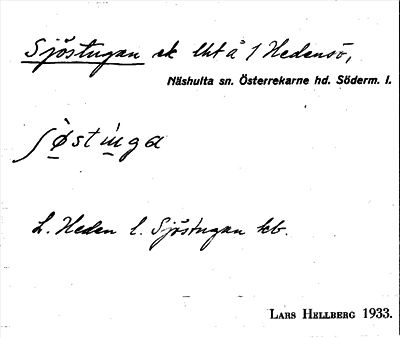 Sjöstugan ek lht å 1 Hedensö,
Näshulta sn. Österrekarne hd. Söderm. l.
ʃø̀stúga
L. Heden l. Sjöstugan kb.
LARS HELLBERG 1933.